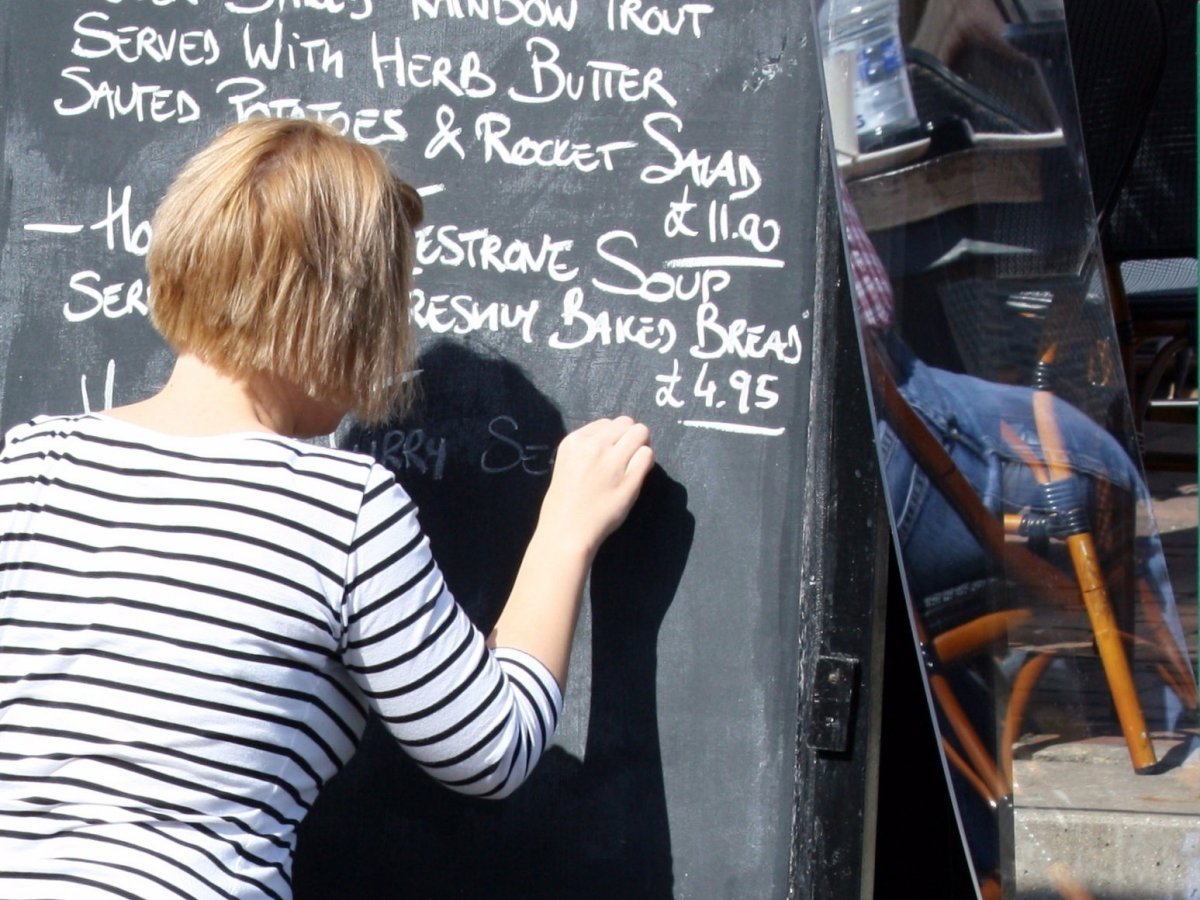 RAINBOW TROUT
SERVED WITH HERB BUTTER
SAUTED POTATOES & ROCKET SALAD
£11.00
— Ho ESTRONE SOUP
SER RESHLY BAKED BREAD
£4.95
URRY SE